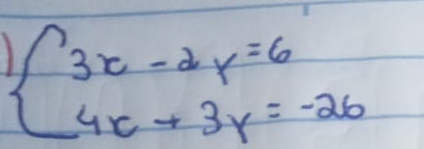 1) { 3x - 2y = 6
4x + 3y = -26